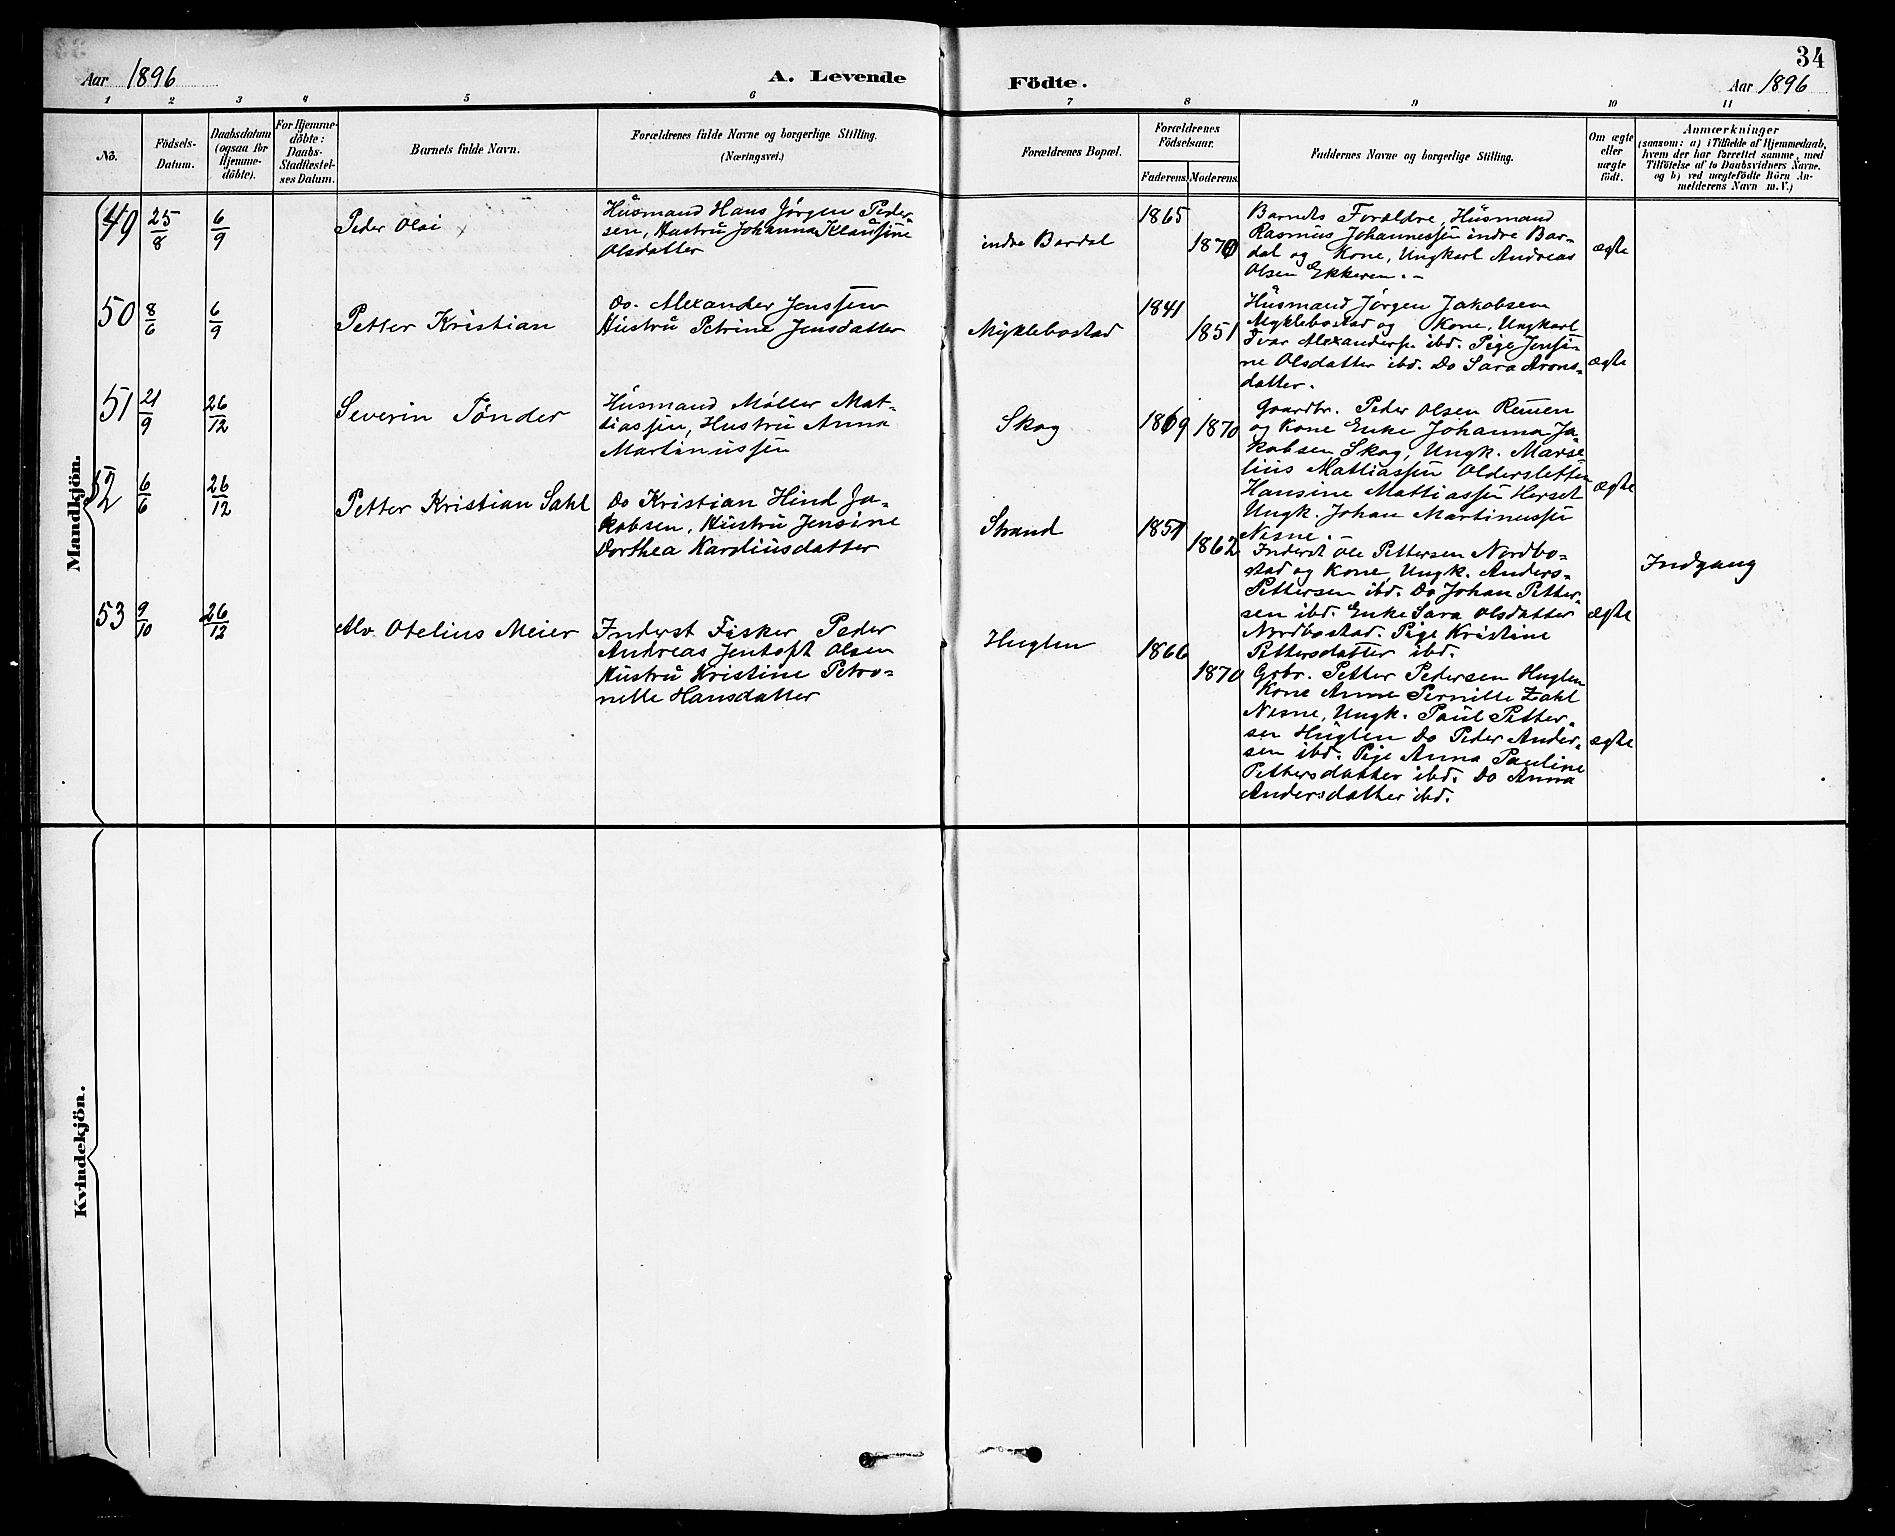 34
Aar 1896
A. Levende
Födte.
Aar 1896
1 2 3 4 5 6 7 8 9 10 11
No.
Födsels-
Datum.
Daabsdatum
(ogsaa for
Hjemme-
döbte).
For Hjemme-
döbte:
Daabs-
Stadfæstel-
ses Datum.
Barnets fulde Navn.
Forældrenes fulde Navne og borgerlige Stilling.
(Næringsvei.)
Forældrenes Bopæl.
Forældrenes
Födselsaar.
Faderens.
Moderens.
Faddernes Navne og borgerlige Stilling.
Om ægte
eller
uægte
födt.
Anmærkninger
(saasom: a) i Tilfælde af Hjemmedaab,
hvem der har forrettet samme, med
Tilföielse af to Daabsvidners Navne,
og b) ved uægtefödte Börn An-
melderens Navn m. V.)
Mandkjön.
49
25/8
6/9
Peder Olai
Husmand Hans Jørgen Peder-
sen, Hustru Johanna Klausine
Olsdatter
indre Bardal
1865
1870
Barnets Forældre, Husmand
Rasmus Johannessen indre Bar-
dal og Kone, Ungkarl Andreas
Olsen Ekkeren.-
ægte
50
8/6
6/9
Petter Kristian
Do. Alexander Jenssen
Hustru Petrine Jensdatter
Myklebostad
1841
1851
Husmand Jørgen Jakobsen
Myklebostad og Kone, Ungkarl
Ivar Alexanders. ibd. Pige Jensi-
ne Olsdatter ibd. Do Sara Arons-
datter.
ægte
51
21/9
26/12
Severin Tønder
Husmand Møller Mat-
tiassen, Hustru Anna
Martinussen
Skog
1869
1870
Gaardbr. Peder Olsen Remen
og Kone Enke Johanna Ja-
kobsen Skog, Ungk. Marse-
lius Mattiassen Oldersletten
Hansine Mattiassen Herset
Ungk. Johan Martinussen
Nesne.-
ægte
52
6/6
26/12
Petter Kristian Sahl
Do Kristian Hind Ja-
kobsen, Hustru Jensine
Dorthea Karoliusdatter
Strand
1851
1862
Inderst Ole Pettersen Nordbo-
stad og Kone, Ungk. Anders
Pettersen ibd. Do Johan Petter-
sen ibd. Enke Sara Olsdatter
Nordbostad. Pige Kristine
Pettersdatter ibd.
ægte
Indgang
53
9/10
26/12
Alv Otelius Meier
Inderst Fisker Peder
Andreas Jentoft Olsen
Hustru Kristine Petro-
nelle Hansdatter
Huglen
1866
1870
Grbr. Petter Pedersen Huglen
Kone Anne Pernille Zahl
Nesne, Ungk. Paul Petter-
sen Huglen Do Peder Ander-
sen ibd. Pige Anna Pauline
Pettersdatter ibd. Do Anna
Andersdatter ibd.
ægte
Kvindekjön.